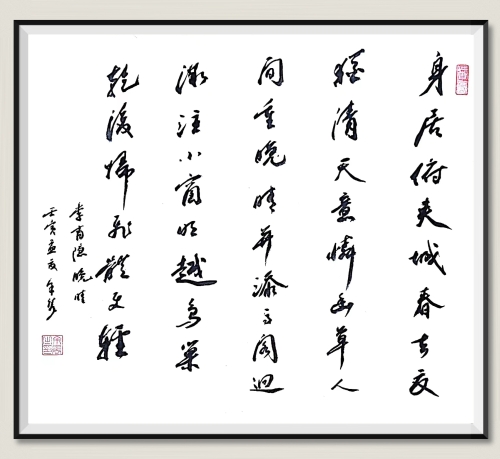 身居俯夾城春去夏
猶清天意憐幽草人
间重晚晴并添高阁迥
微注小窗明越鸟巢
乾後歸飛體更輕
李商隐晚晴
壬寅孟夏